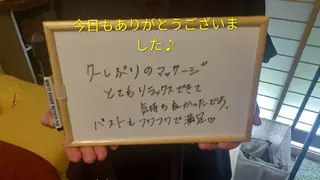 今日もありがとうございま
した♪
久しぶりのマッサージ
とてもリラックスできて
気持ち良かったです。
バストもフワフワで満足♡